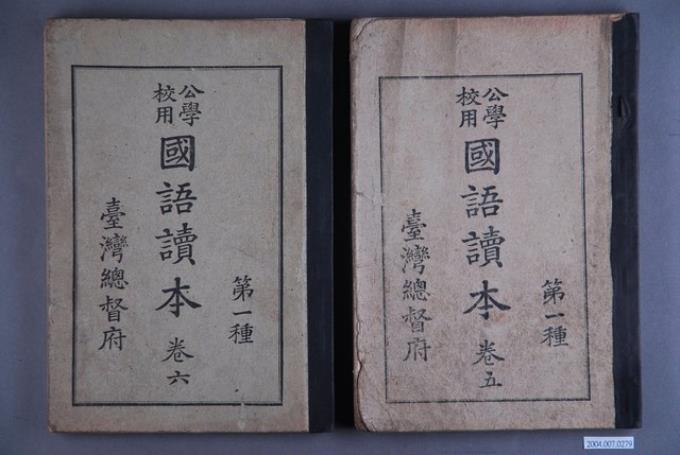 公學
校用
國語讀本 卷六
第一種
臺灣總督府
公學
校用
國語讀本 卷五
第一種
臺灣總督府
2004.007.0279